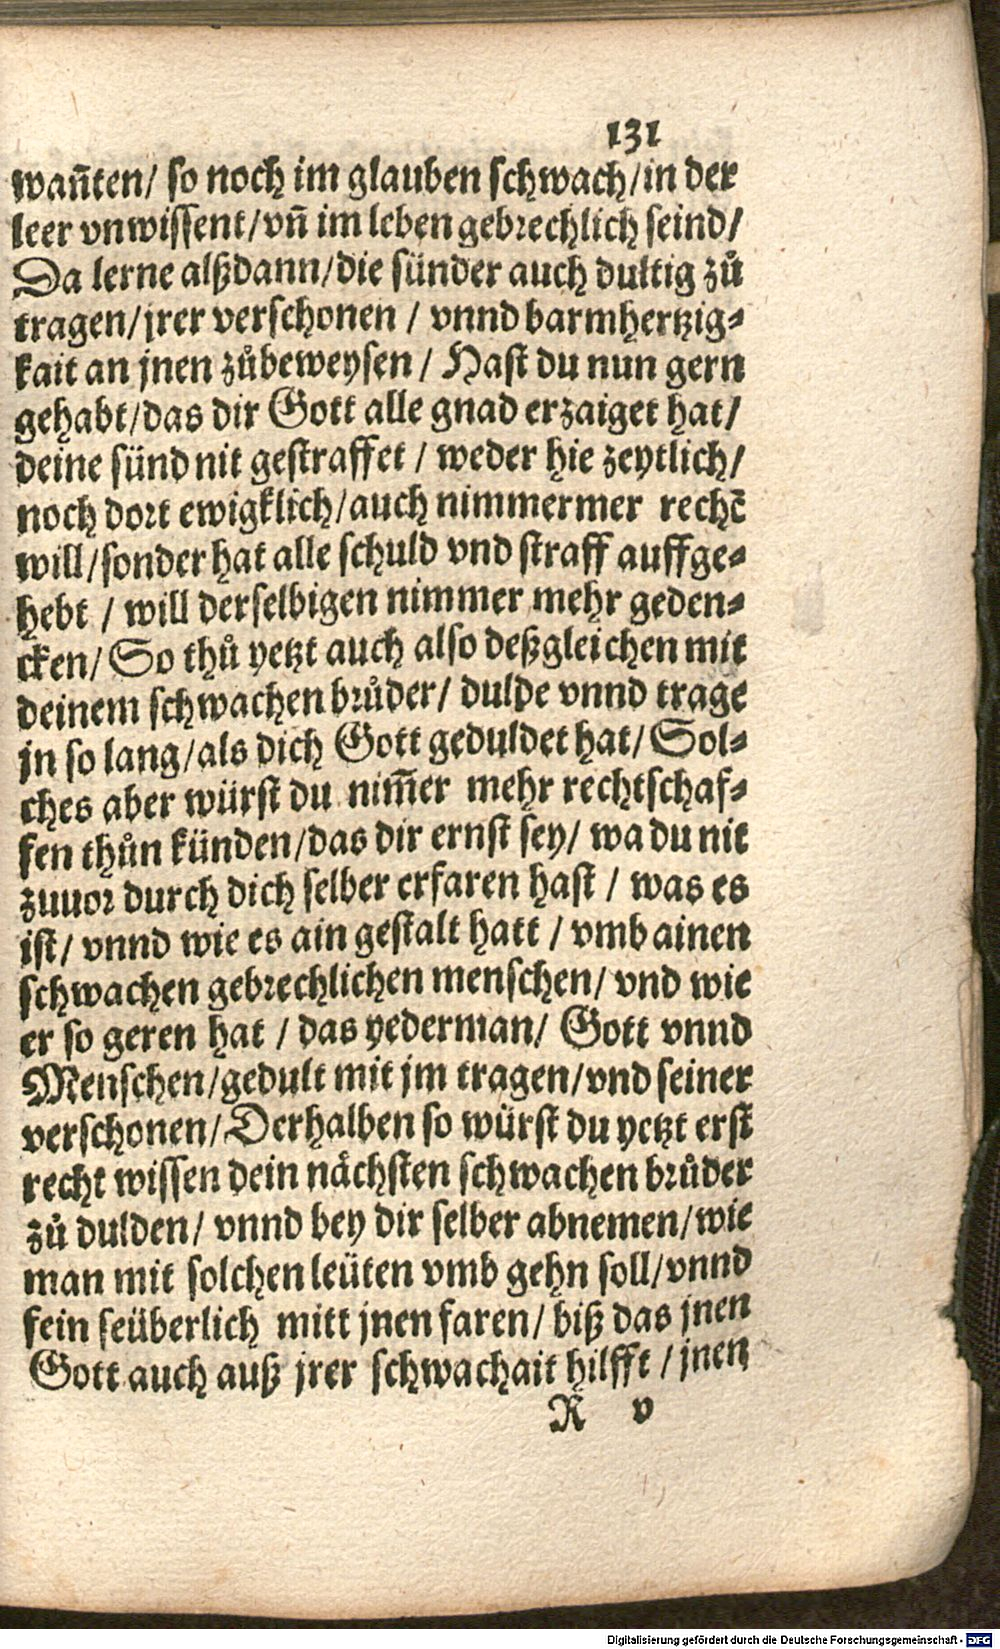 131
wan̄ten/ so noch im glauben schwach/in der
leer vnwissent/vn̄ im leben gebrechlich seind/
Da lerne alßdann/die sünder auch dultig zů
tragen/jrer verschonen / vnnd barmhertzig⸗
kait an jnen zůbeweysen / Hast du nun gern
gehabt/das dir Gott alle gnad erzaiget hat/
deine sünd nit gestraffet / weder hie zeytlich/
noch dort ewigklich/auch nimmermer rechē
will/sonder hat alle schuld vnd straff auffge⸗
hebt / will derselbigen nimmer mehr geden⸗
cken/ So thů yetzt auch also deßgleichen mit
deinem schwachen brůder/ dulde vnnd trage
jn so lang/als dich Gott geduldet hat/ Sol⸗
ches aber würst du nim̄er mehr rechtschaf⸗
fen thůn künden/das dir ernst sey/ wa du nit
zuuor durch dich selber erfaren hast / was es
ist/ vnnd wie es ain gestalt hatt / vmb ainen
schwachen gebrechlichen menschen/ vnd wie
er so geren hat / das yederman/ Gott vnnd
Menschen/gedult mit jm tragen/vnd seiner
verschonen/Derhalben so würst du yetzt erst
recht wissen dein nächsten schwachen brůder
zů dulden/ vnnd bey dir selber abnemen/wie
man mit solchen leüten vmb gehn soll/vnnd
fein seüberlich mitt jnen faren/ biß das jnen
Gott auch auß jrer schwachait hilfft / jnen
R v
Digitalisierung gefördert durch die Deutsche Forschungsgemeinschaft - DFG